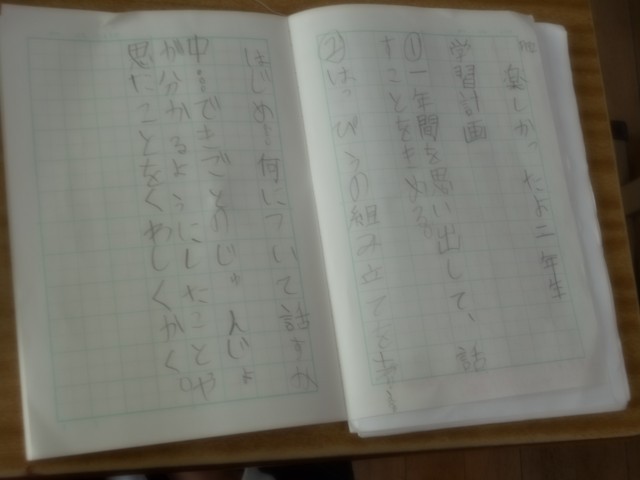 楽しかったよ二年生
学習計画
①一年間を思い出して、話
すことをきめる。
②はっぴょうの組み立て
はじめ…何について話すか
中…できごとのじゅんじょ
が分かるようにしたことや
思たことをくわしくかく。